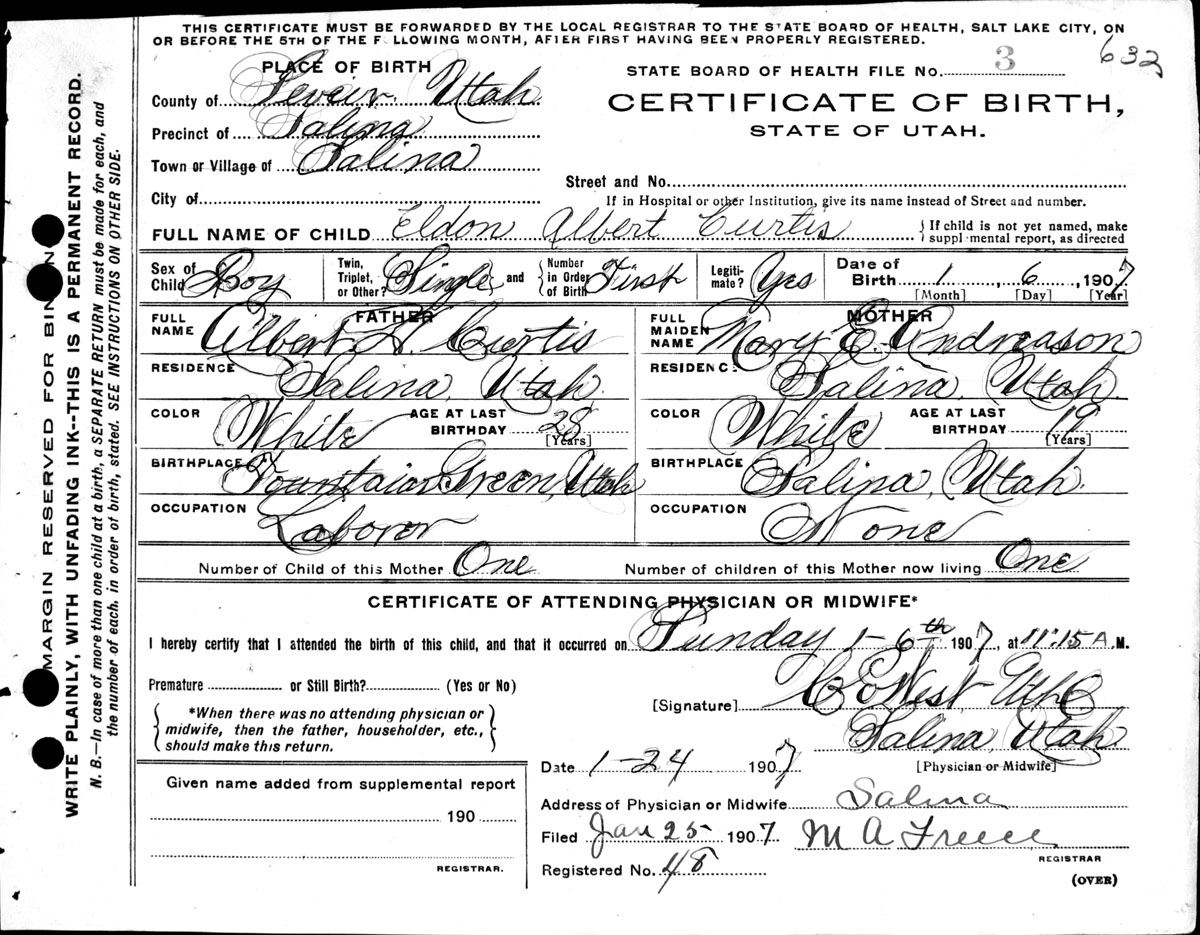 THIS CERTIFICATE MUST BE FORWARDED BY THE LOCAL REGISTRAR TO THE STATE BOARD OF HEALTH, SALT LAKE CITY, ON
OR BEFORE THE 5TH OF THE F LLOWING MONTH, AFTER FIRST HAVING BEEN PROPERLY REGISTERED.
632
PLACE OF BIRTH
STATE BOARD OF HEALTH FILE No. 3
County of Seveir. Utah.
CERTIFICATE OF BIRTH,
STATE OF UTAH.
Precinct of Salina
Town or Village of Salina
Street and No.
City of
If in Hospital or other Institution, give its name instead of Street and number.
FULL NAME OF CHILD Eldon Albert Curtis
If child is not yet named, make
suppl mental report, as directed
Sex of Child Boy
Twin, Triplet, or Other? Single and Number in Order of Birth First
Legiti-mate? Yes
Date of Birth 1 6, 1907
[Month] [Day] [Year]
FATHER
MOTHER
FULL NAME Albert H. Curtis
FULL MAIDEN NAME Mary E. Andreason
RESIDENCE Salina, Utah.
RESIDENC: Salina, Utah.
COLOR White AGE AT LAST BIRTHDAY 28 [Years]
COLOR White AGE AT LAST BIRTHDAY 19 [Years]
BIRTHPLACE Fountain Green, Utah
BIRTHPLACE Salina, Utah.
OCCUPATION Laborer
OCCUPATION None
Number of Child of this Mother One
Number of children of this Mother now living One
CERTIFICATE OF ATTENDING PHYSICIAN OR MIDWIFE*
I hereby certify that I attended the birth of this child, and that it occurred on Sunday 1-6th 1907, at 11:15 A. M.
Premature or Still Birth? (Yes or No)
[Signature] C E West
*When there was no attending physician or
midwife, then the father, householder, etc.,
should make this return.
Salina, Utah.
[Physician or Midwife]
Date 1-24 1907
Given name added from supplemental report
190
REGISTRAR.
Address of Physician or Midwife Salina
Filed Jan 25 1907 M A Freece
REGISTRAR
Registered No. 48
(OVER)
MARGIN RESERVED FOR BIN N
WRITE PLAINLY, WITH UNFADING INK--THIS IS A PERMANENT RECORD.
N. B.—In case of more than one child at a birth, a SEPARATE RETURN must be made for each, and
the number of each, in order of birth, stated. SEE INSTRUCTIONS ON OTHER SIDE.